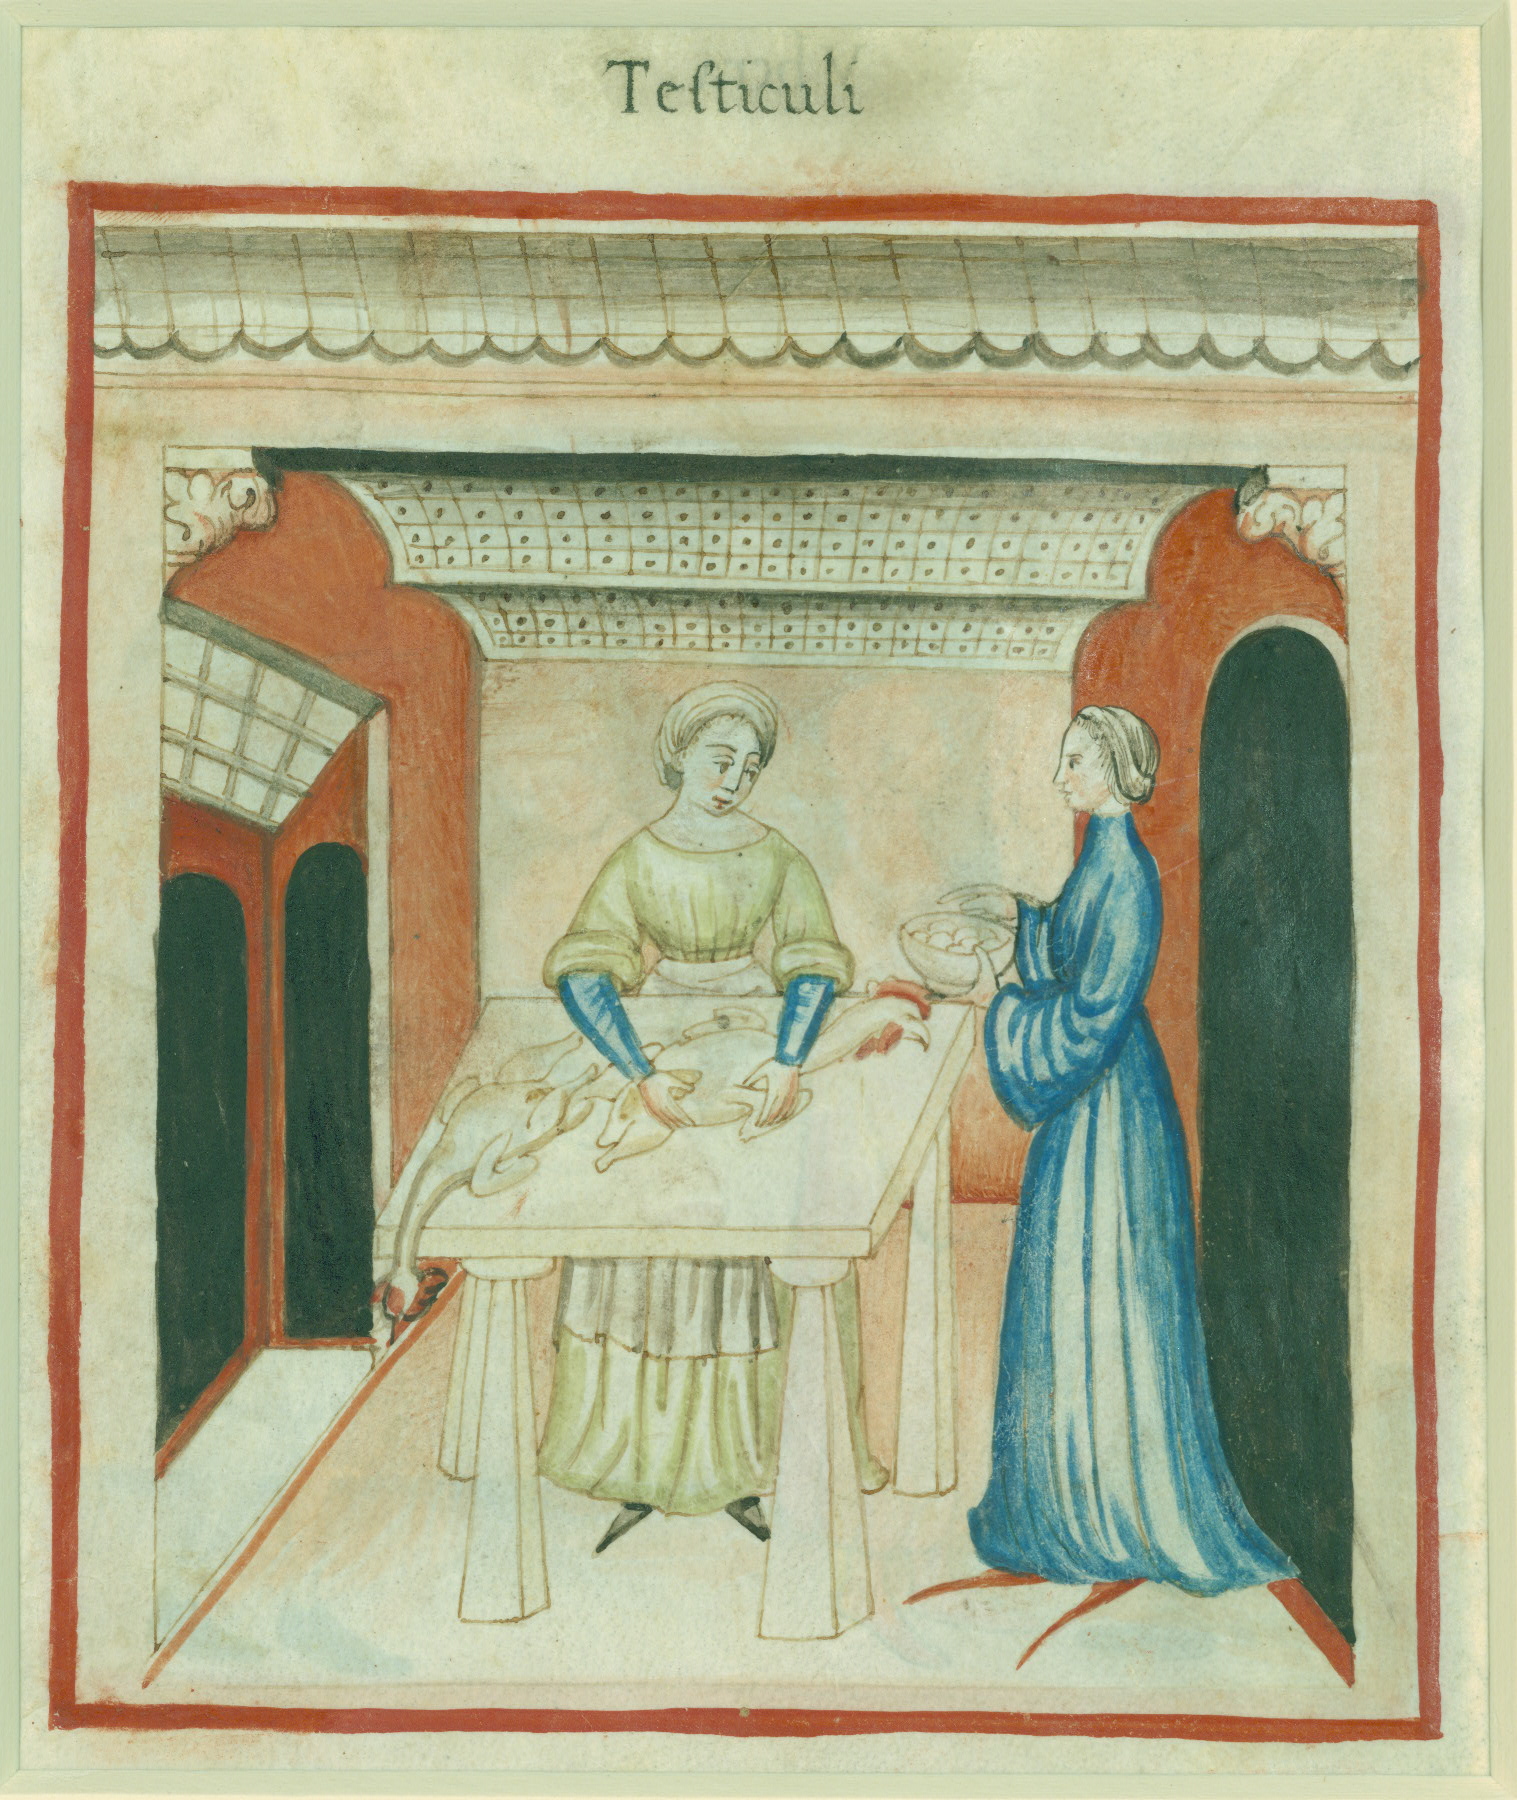 Teſticuli